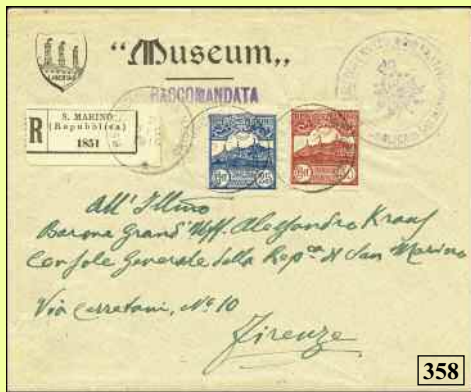 "Museum„
RACCOMANDATA
R
S. MARINO
(Repubblica)
1851
All'Illmo
Barone Grand'Uff. Alessandro Kraus
Console Generale della Repca di San Marino
Via Cerretani, No 10
Firenze
358